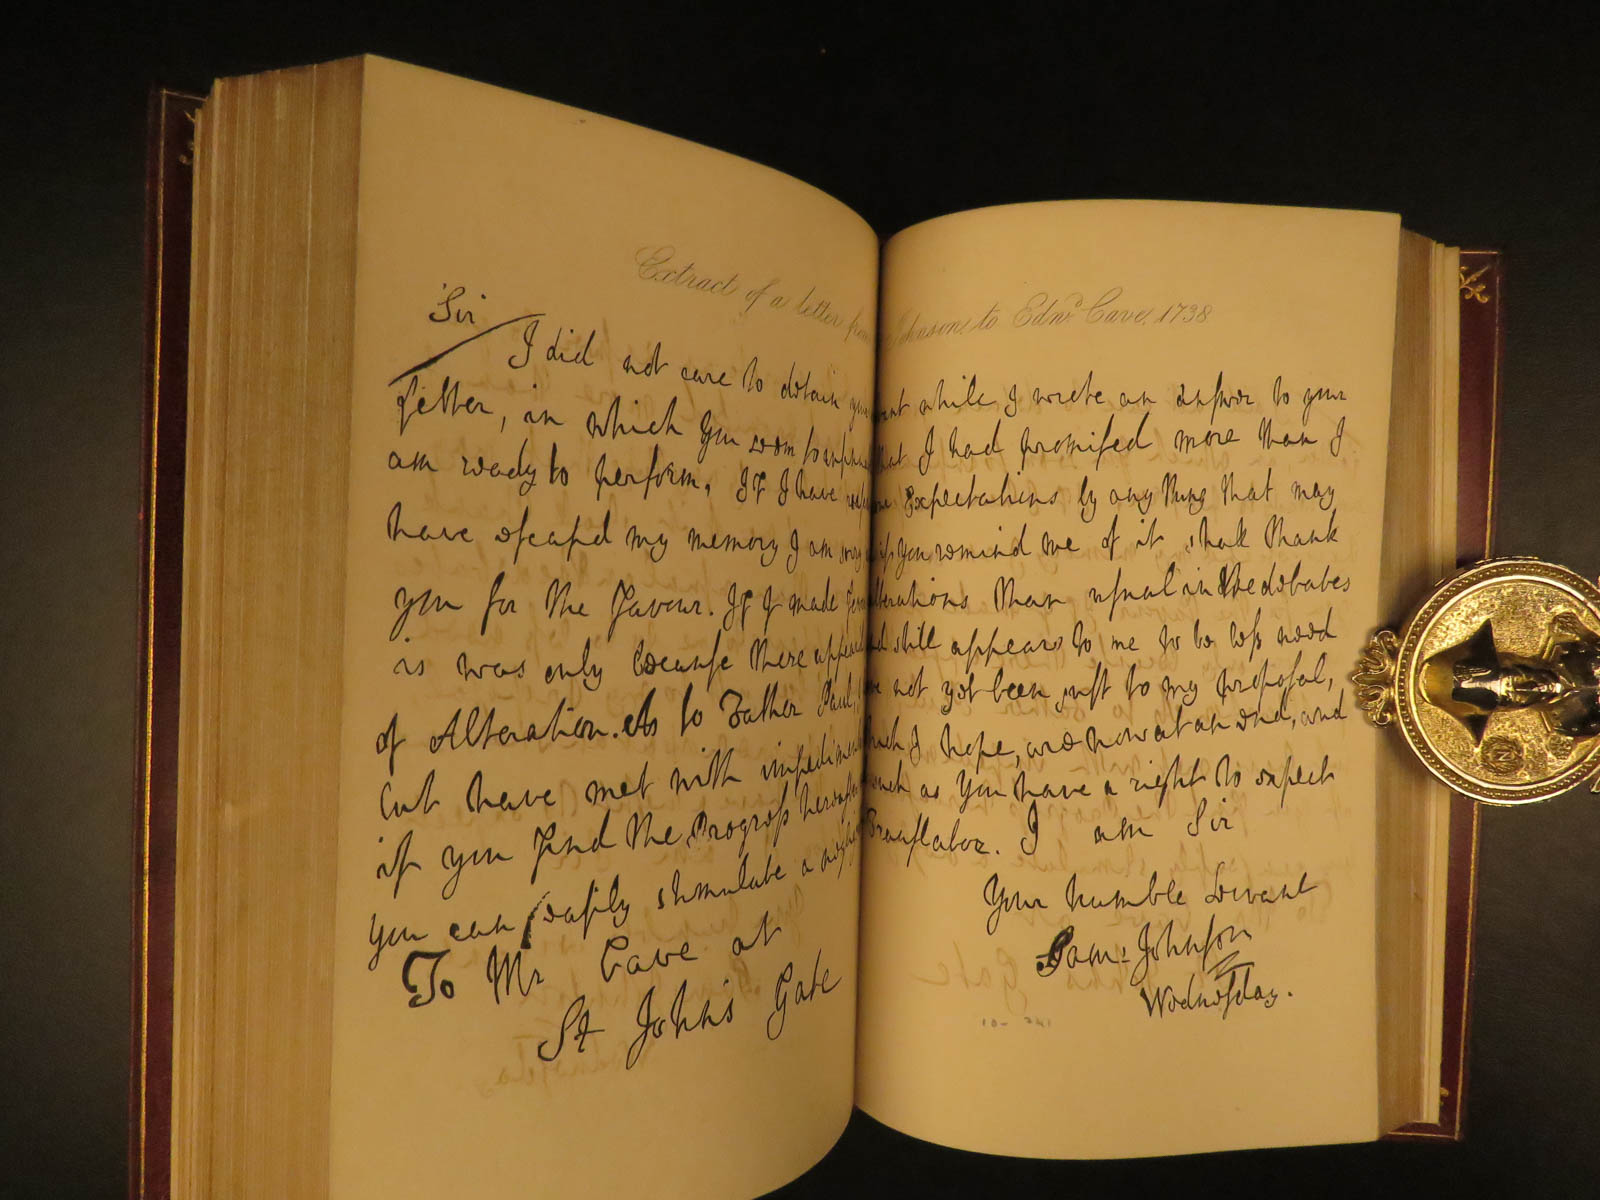 Extract of a letter from Johnson to Edwd. Cave, 1738
Sir
I did not care to detain your servant while I wrote an answer to your
Letter, in which you seem to that I had promised more than I
am ready to perform. If I have your Expectations by any thing that may
have escap'd my memory I am sorry if you remind me of it shall thank
you for the Favour. If I made fewer alterations than usual in the debates
it was only because there appear'd and still appears to me to be less need
of Alteration. As to Father Paul, I have not yet been just to my proposal,
but have met with impediments which I hope, are now at an end, and
if you find the Progress hereafter such as you have a right to expect
you can easily stimulate a negligent Translator. I am Sir
Your humble Servant
Sam: Johnson
Wednesday.
To Mr Cave at
St John's Gate
N